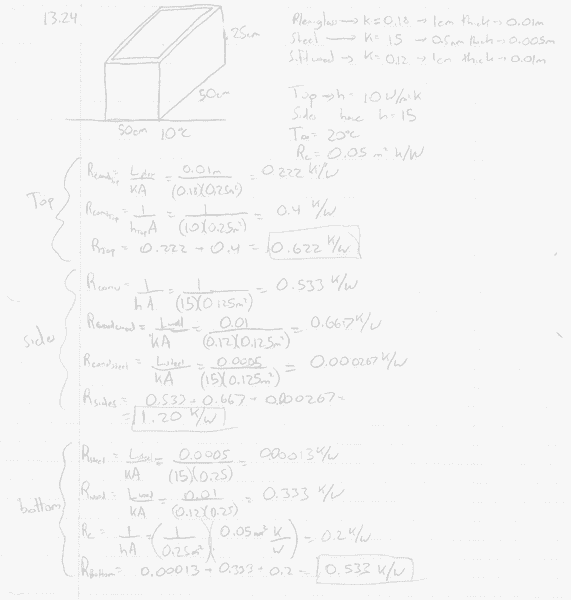 13.24
25cm
50cm
50cm 10°C
Plexiglass → k = 0.18 → 1cm thick → 0.01m
Steel → K = 15 → 0.5mm thick → 0.005m
Softwood → K = 0.12 → 1cm thick → 0.01m
Top → h = 10 W/m²K
Sides have h = 15
T∞ = 20°C
Rc = 0.05 m² K/W
Top
Rcondtop = Lplex/KA = 0.01m/(0.18)(0.25m²) = 0.222 K/W
Rconvtop = 1/htopA = 1/(10)(0.25m²) = 0.4 K/W
Rtop = 0.222 + 0.4 = 0.622 K/W
sides
Rconv = 1/hA = 1/(15)(0.125m²) = 0.533 K/W
Rcondwood = Lwood/KA = 0.01/(0.12)(0.125m²) = 0.667 K/W
Rcondsteel = Lsteel/KA = 0.0005/(15)(0.125m²) = 0.000267 K/W
Rsides = 0.533 + 0.667 + 0.000267 =
= 1.20 K/W
bottom
Rsteel = Lsteel/KA = 0.0005/(15)(0.25) = 0.00013 K/W
Rwood = Lwood/KA = 0.01/(0.12)(0.25) = 0.333 K/W
Rc = 1/hA = (1/0.25m²)(0.05m² K/W) = 0.2 K/W
RBottom = 0.00013 + 0.333 + 0.2 = 0.533 K/W